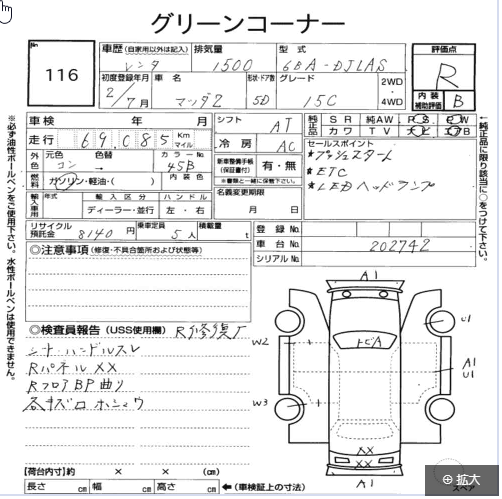 グリーンコーナー
No
116
車歴 (自家用以外は記入) 排気量 型式
レンタ 1500 6BA-DJLAS
初度登録年月 車名 形状・ドア数 グレード 2WD・4WD
2/7月 マツダ2 5D 15C
評価点
R
内装補助評価 B
車検 年 月
走行 69,085 Km マイル
外色 元色 色替 カラーNo.
コン → 45B
燃料 ガソリン・軽油・( ) 内装色
輸入車用 年式 輸入区分 ハンドル
ディーラー・並行 左・右
リサイクル預託金 8140 円 乗車定員 5人 積載量 t
シフト AT
冷房 AC
新車整備手帳(保証書付) 有・無
※書類と一緒に保管下さい。
名義変更期限
月 日
純正品 SR 純AW PS PW
カワ TV ナビ エアB
セールスポイント
*プッシュスタート
*ETC
*LEDヘッドランプ
登録No.
車台No. 202742
シリアルNo.
※必ず油性ボールペンをご使用下さい。水性ボールペンは使用できません。
←純正品に限り該当に○をつけて下さい。
◎注意事項 (修復・不具合箇所および状態等)
◎検査員報告 (USS使用欄) R修復歴
シート ハンドルスレ
Rパネル XX
Rフロア BP曲り
各キズ
【荷台内寸】約 × × (cm)
長さ cm 幅 cm 高さ cm ←(車検証上の寸法)
A1
U1
W2
トビA
A1
U1
W3
XX
XX
A1
スペア
拡大